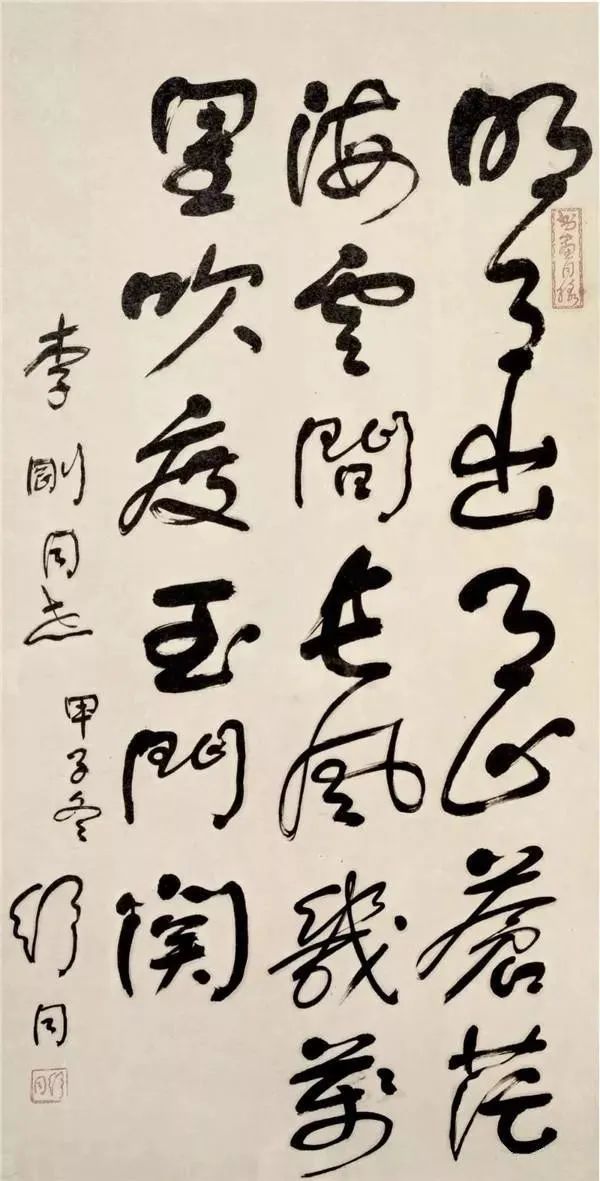 明月出天山蒼茫
海雲間長風幾萬
里吹度玉門關
李剛同志
甲子冬
舒同
舒同